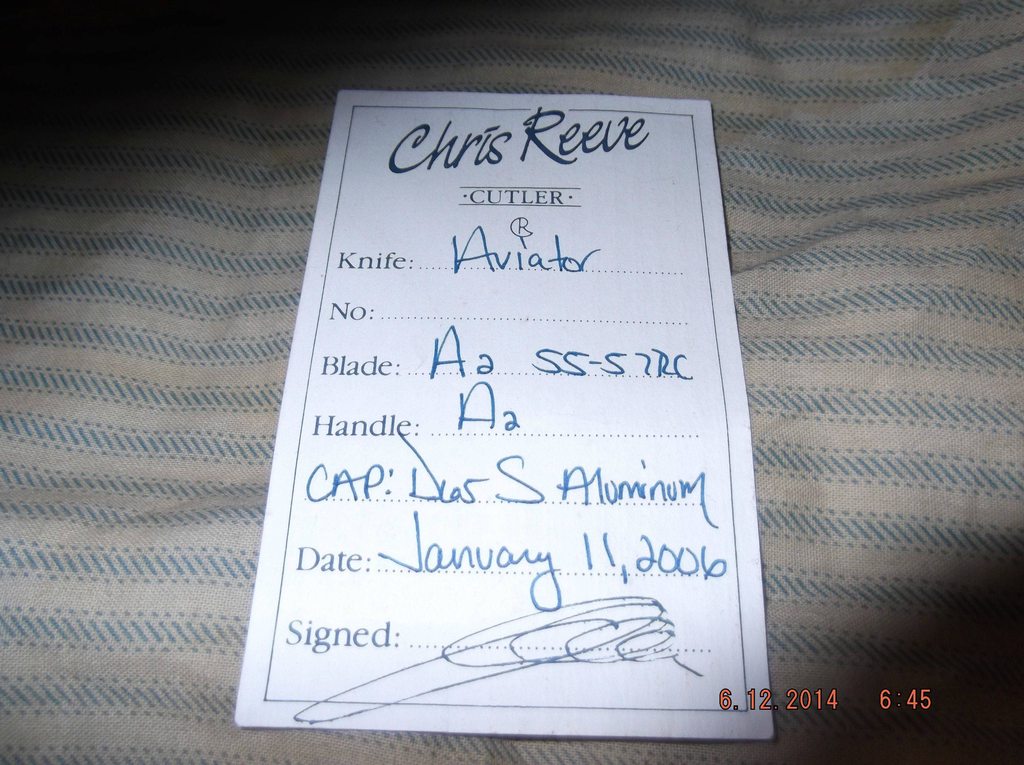 Chris Reeve
·CUTLER·
®
Knife: Aviator
No:
Blade: A2 55-57RC
Handle: A2
CAP: S Aluminum
Date: January 11, 2006
Signed:
6.12.2014 6:45